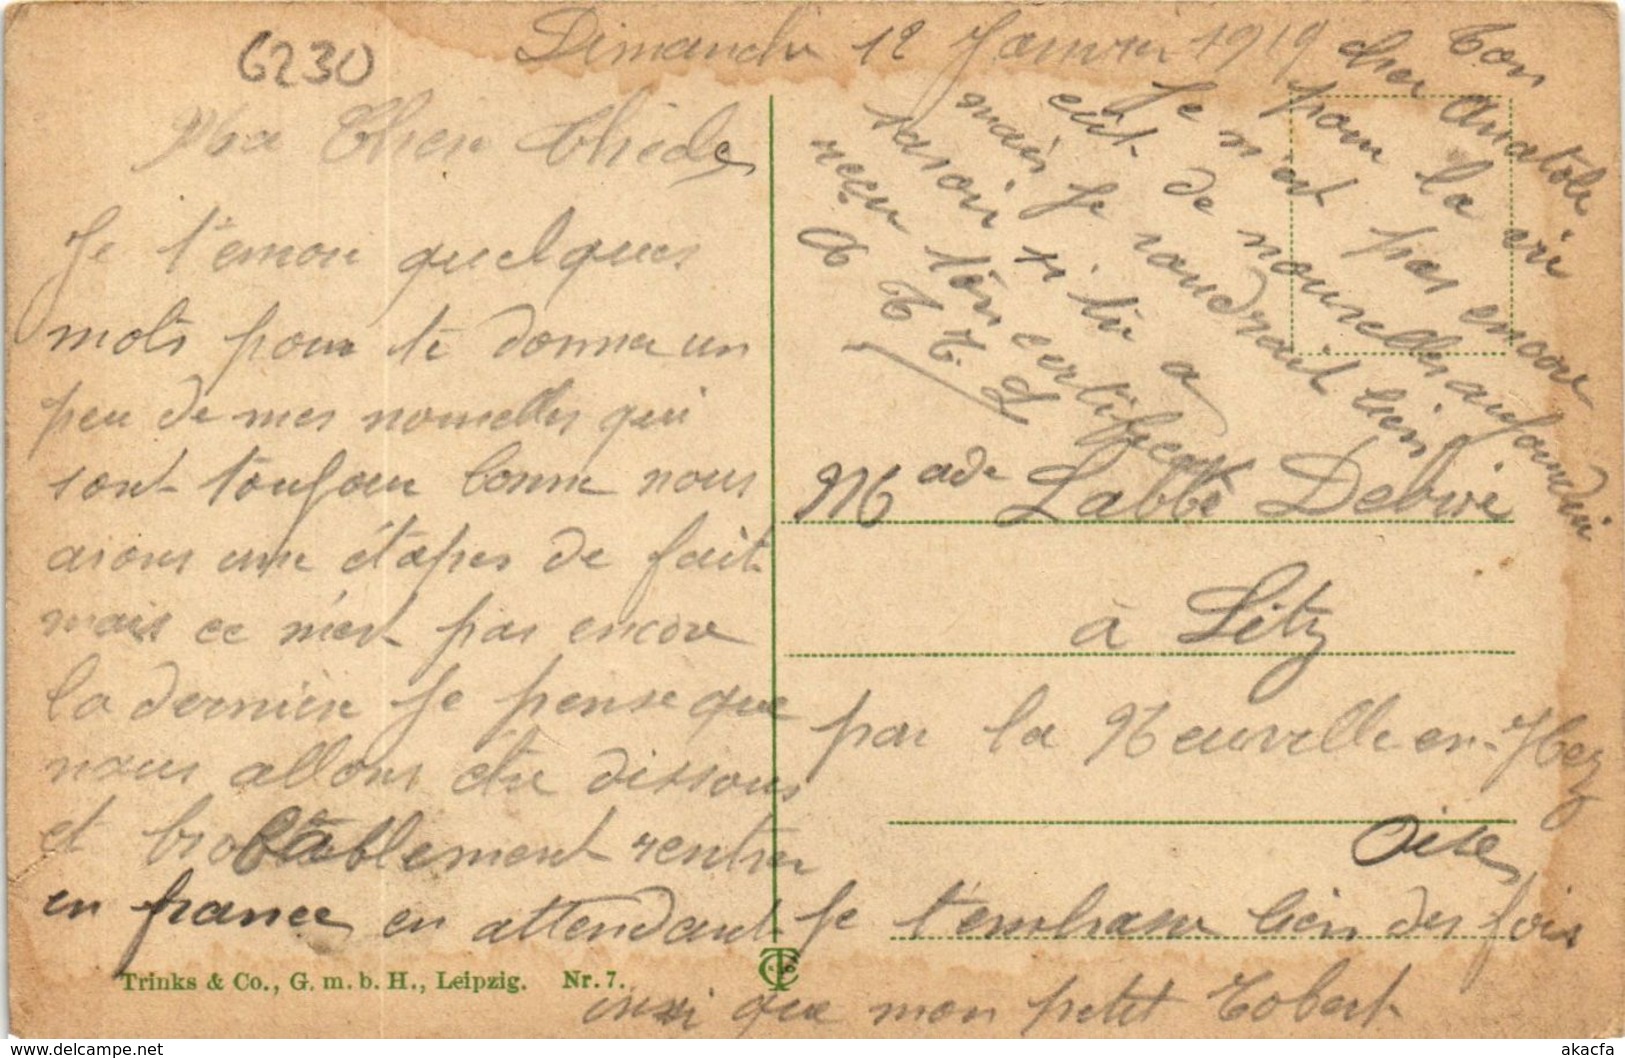 6230
Dimanche 12 Janvier 1919
Ma Cher
Je t'envoi quelques
mots pour te donner un
peu de mes nouvelles qui
sont toujour bonne nous
avons une étapes de fait
mais ce n'est pas encore
la dernière je pense que
nous allons etre dissous
et probablement rentrer
en france en attendant je t'embrasse bien des fois
ainsi que mon petit Robert
Ton
cher Anatole
pour la vie
Je n'est pas encore
eut de nouvelles aujourd'hui
mais je voudrait bien
savoir si tu a
reçu ton certificat
A T T L
Made Labbé Debive
à Litz
par la Neuville en-Hez
Oise
Trinks & Co., G. m. b. H., Leipzig. Nr. 7.
akacfa